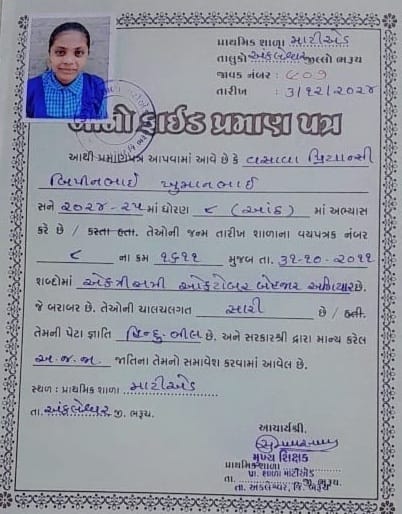 પ્રાથમિક શાળા માટીએડ
તાલુકો અંકલેશ્વર જીલ્લો ભરૂચ
જાવક નંબર : ૯૦૭
તારીખ : ૩/૧૨/૨૦૨૪
બોનોફાઈડ પ્રમાણ પત્ર
આથી પ્રમાણપત્ર આપવામાં આવે છે કે વસાવા પ્રિયાન્સી
બિપીનભાઈ ખુમાનભાઈ
સને ૨૦૨૪-૨૫ માં ધોરણ ૮ (આઠ) માં અભ્યાસ
કરે છે / કરતા હતા. તેઓની જન્મ તારીખ શાળાના વયપત્રક નંબર
૮ ના ક્રમ ૧૬૧૧ મુજબ તા. ૩૧-૧૦-૨૦૧૧
શબ્દોમાં એકત્રીસમી ઓક્ટોબર બેહજાર અગિયાર છે.
જે બરાબર છે. તેઓની ચાલચલગત સારી છે / હતી.
તેમની પેટા જ્ઞાતિ હિન્દુ-ભીલ છે. અને સરકારશ્રી દ્વારા માન્ય કરેલ
અ.જ.જા. જાતિના તેમનો સમાવેશ કરવામાં આવેલ છે.
સ્થળ : પ્રાથમિક શાળા માટીએડ
તા. અંકલેશ્વર જી. ભરૂચ.
આચાર્યશ્રી.
મુખ્ય શિક્ષક
પ્રાથમિક શાળા
પ્રા. શાળા માટીએડ
તા. જી. ભરૂચ.
તા. અંકલેશ્વર, જિ. ભરૂચ